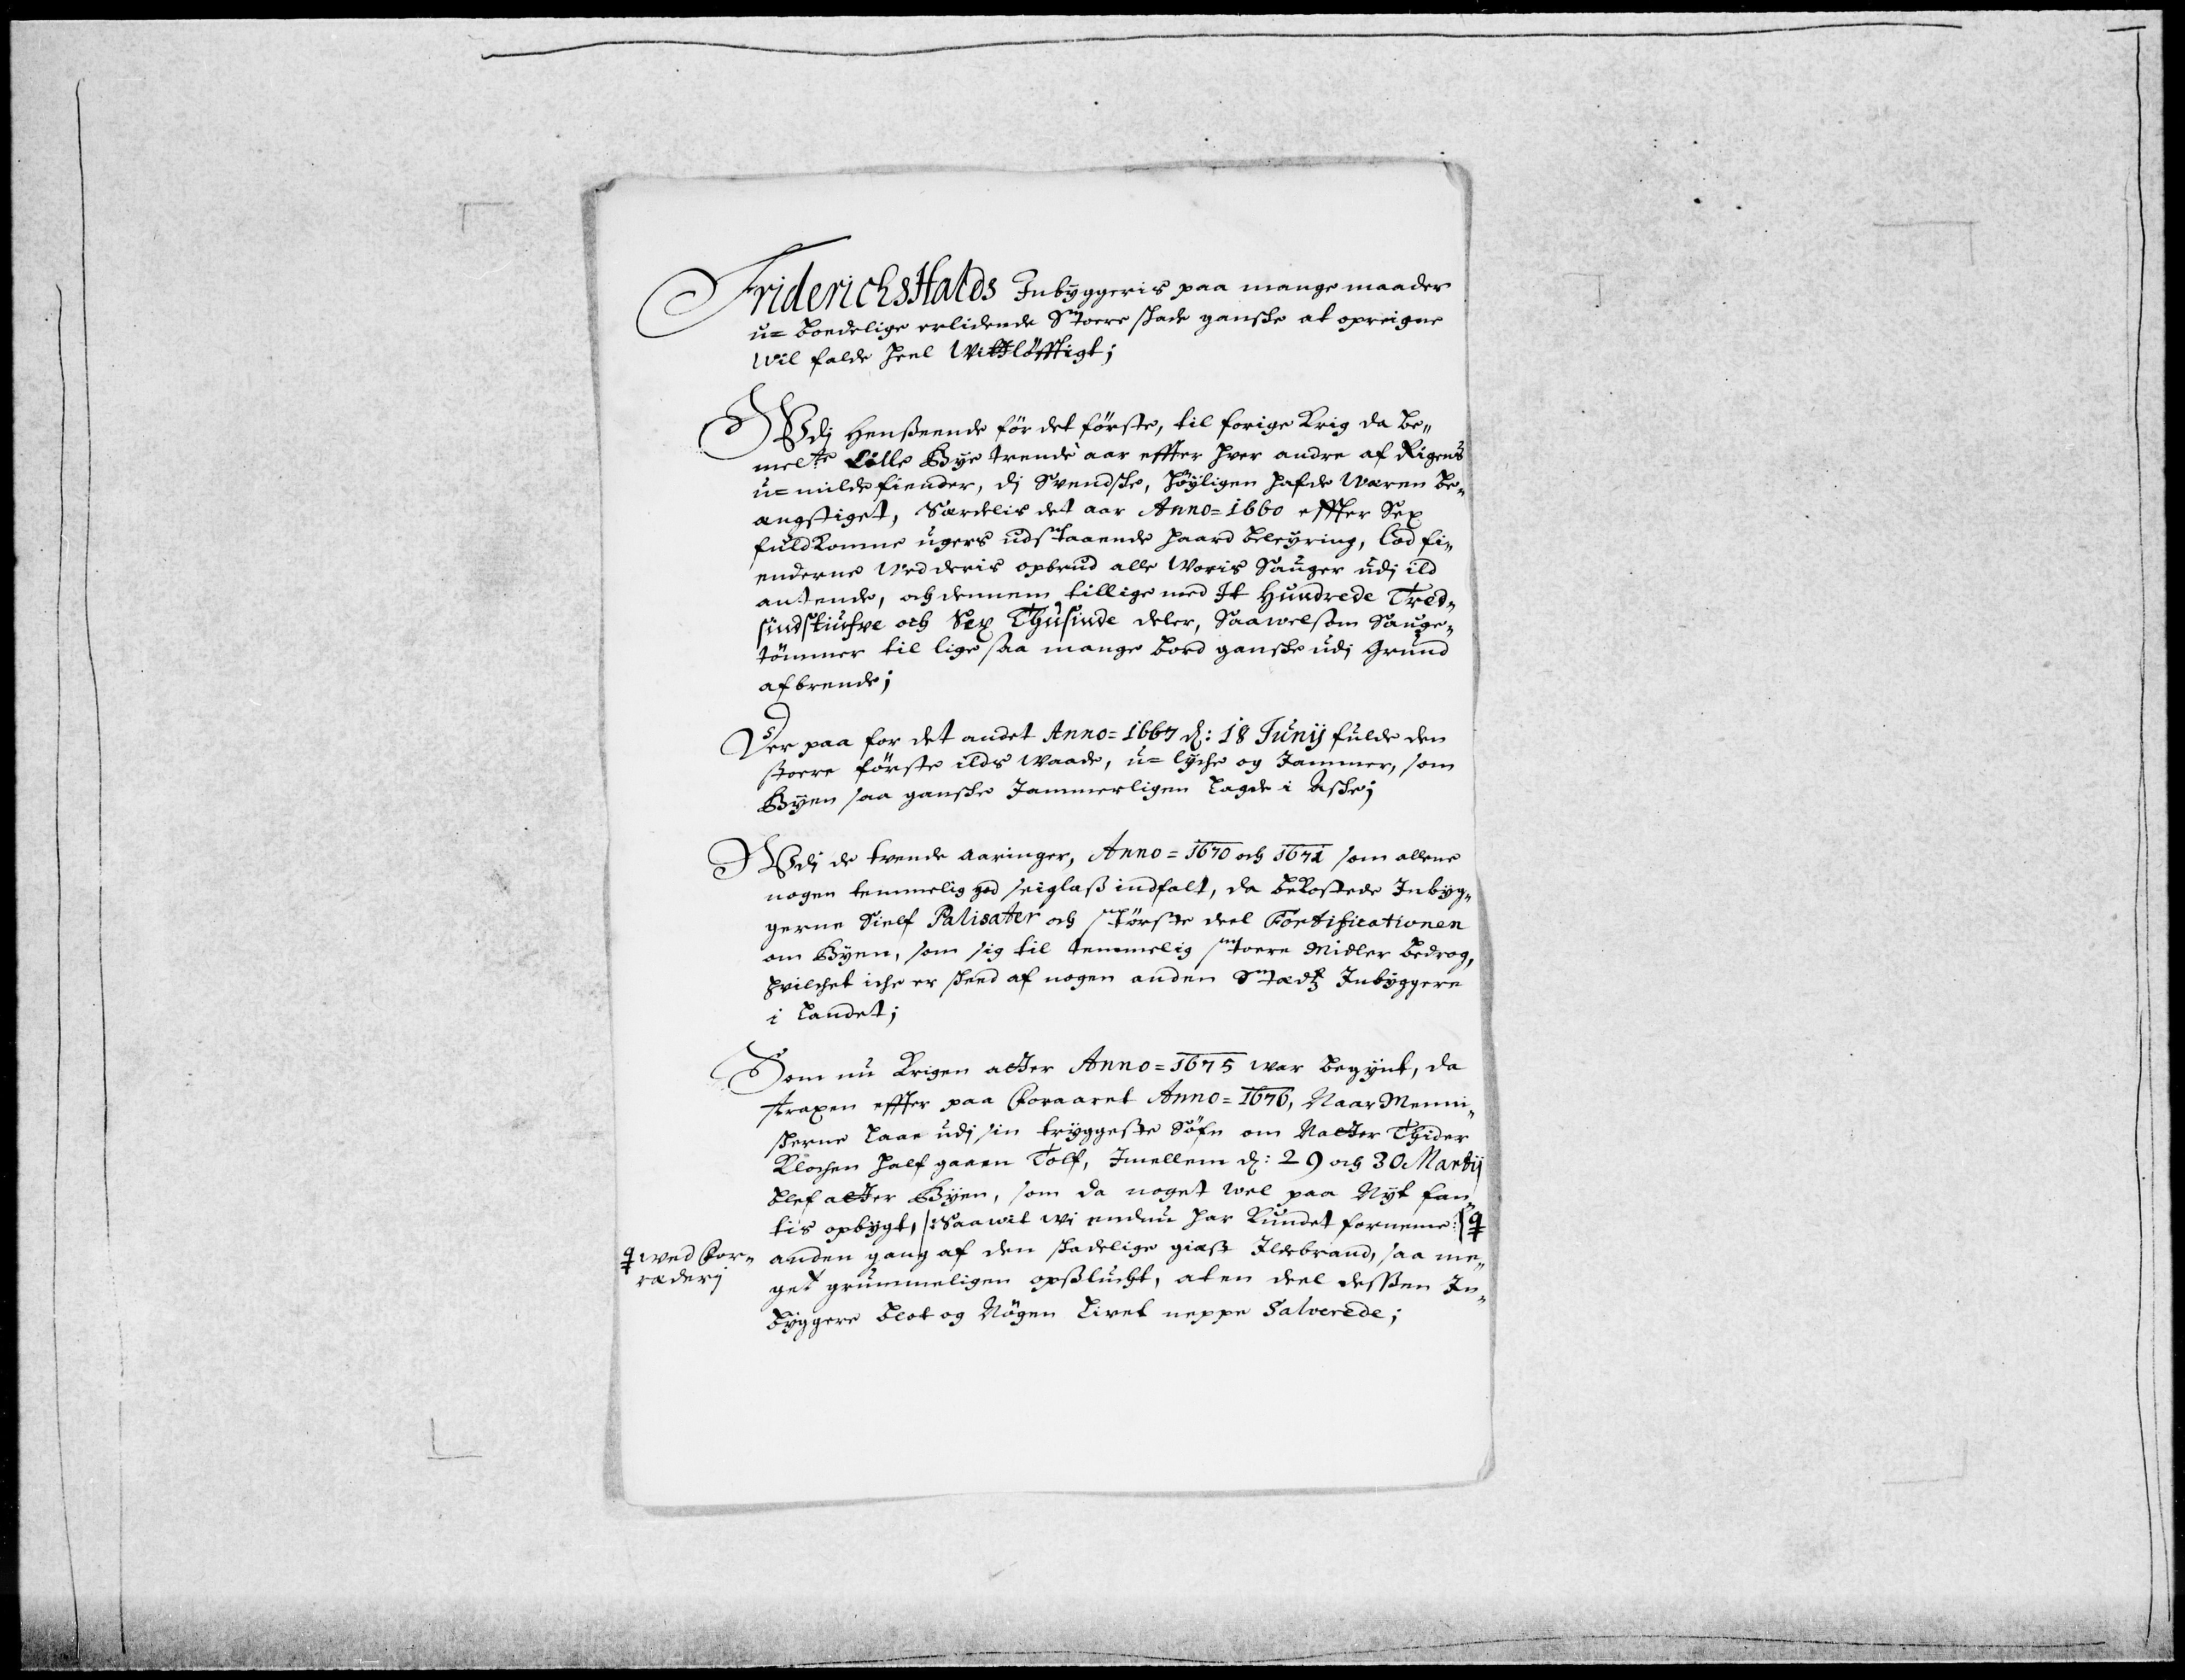 FriderichsHalds Inbyggeris paa mange maader
u= boedelige erlidende Stoere skade ganske at opreigne
wil falde heel Witløfftigt;
Udj Henßeende før det første, til forige Krig da be„
melte Lille Bye trende aar effter hver andre af Rigens
u=milde fiender, dj Svendske, høyligen hafde waren be„
ængstiget, Særdelis det aar Anno=1660 effter Sex
fuldkomne ugers udstaaende haard beleyring, lod fi„
enderne Ved deris opbrud alle Woris Sauger udj ild
antende, och dennem tillige med It Hundrede Tred„
sindstiufve och Sex Thusinde deler, Saawelsom Sauge„
tømmer til lige saa mange bord ganske udj Grund
afbrende;
Der paa for det andet Anno=1667 d: 18 Junij fulde den
stoere første ilds waade, u=lyche og Jammer, som
Byen saa ganske Jammerligen lagde i Aske;
Udj de tvende aaringer, Anno=1670 och 1671 som allene
nogen temmelig god seiglaß indfalt, da bekostede Inbyg„
gerne Sielf Palisater och største deel Fortificationen
om Byen, som sig til temmelig stoere Midler bedrog,
hvilchet iche er skeed af nogen anden Stædtz Inbyggere
i Landet;
Som nu Krigen atter Anno=1675 war begynt, da
straxen effter paa Foraaret Anno=1676, Naar Menni„
skerne laae udj sin tryggeste Søfn om Natter Thider
Klochen half gaaen Tolf, Imellem d: 29 och 30 Martij
blef atter Byen, som da noget wel paa Nyt fan„
tis opbygt, /: Saawit wi endnu har kundet forneme :/
anden gang af den skadelige giæst Ildebrand, saa me„
get grummeligen opslucht, at en deel desßen In„
byggere blot og Nøgen livet neppe Salverede;
wed For„
ræderj